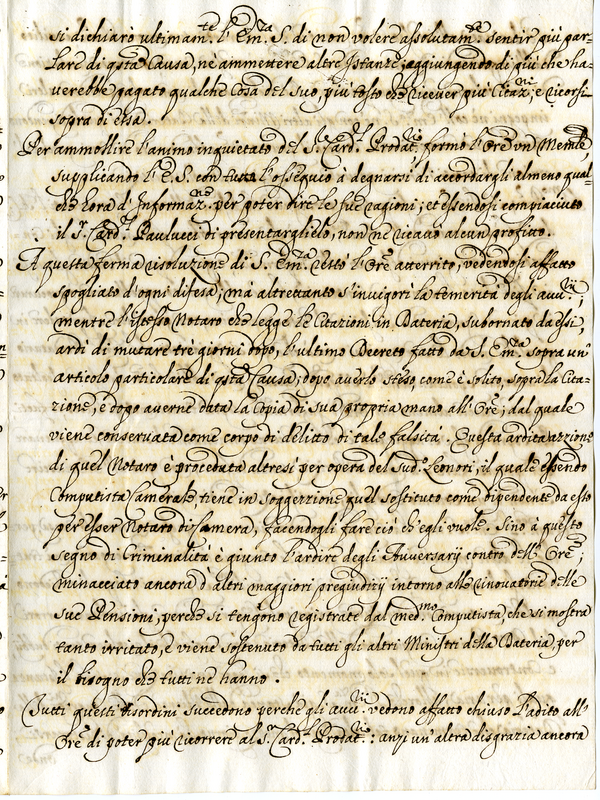 si dichiarò ultimam.te l'Em.za S. di non volere assolutam.te sentir più par-
lare di q.sta Causa, nè ammettere altre Istanze; aggiungendo di più che ha-
verebbe pagato qualche Cosa del suo, più tosto che ricever più Citaz.ne, e ricorsi
sopra di essa.
Per ammollire l'animo inquietato del S.r Card.l Prodat.rio formò l'Ore un Memle,
supplicando l'E.S. con tutta l'ossequio a degnarsi di accordargli almeno qual-
che hora d'Informaz.ne per poter dire le sue ragioni; et essendosi compiaciuto
il S.r Card.l Paulucci di presentarglielo, non ne ricavò alcun profitto.
A questa ferma risoluzione di S. Em.za restò l'Ore atterrito, vedendosi affatto
spogliato d'ogni difesa; mà altrettanto s'invigorì la temerità degli avv.rij;
mentre l'istesso Notaro che legge le Citazioni in Dateria, subornato da essi,
ardì di mutare trè giorni dopo, l'ultimo Decreto fatto da S. Em.za sopra un'
articolo particolare di q.sta Causa; dopo averlo steso, come è solito, sopra la Cita-
zione, e dopo averne data la Copia di sua propria mano all'Ore; dal quale
viene conservata come corpo di delitto di tale falsità. Questa ardita azzione
di quel Notaro è proceduta altresì per opera del sud.o Leonori, il quale essendo
Computista Camerale tiene in soggezzione quel sostituto come dipendente da esso
per esser Notaro di Camera, facendogli fare ciò ch'egli vuole. Sino a questo
segno di Criminalità è giunto l'ardire degli Avversarij contro dell'Ore;
minacciato ancora d'altri maggiori pregiudizij intorno alle rinovatorie delle
sue Pensioni, perche si tengono registrate dal med.mo Computista, che si mostra
tanto irritato, e viene sostenuto da tutti gli altri Ministri della Dateria, per
il bisogno che tutti ne hanno.
Tutti questi disordini succedono perche gli avv.rij vedono affatto chiuso l'adito all'
Ore di poter più ricorrere al S.r Card.l Prodat.rio: anzi un'altra disgrazia ancora